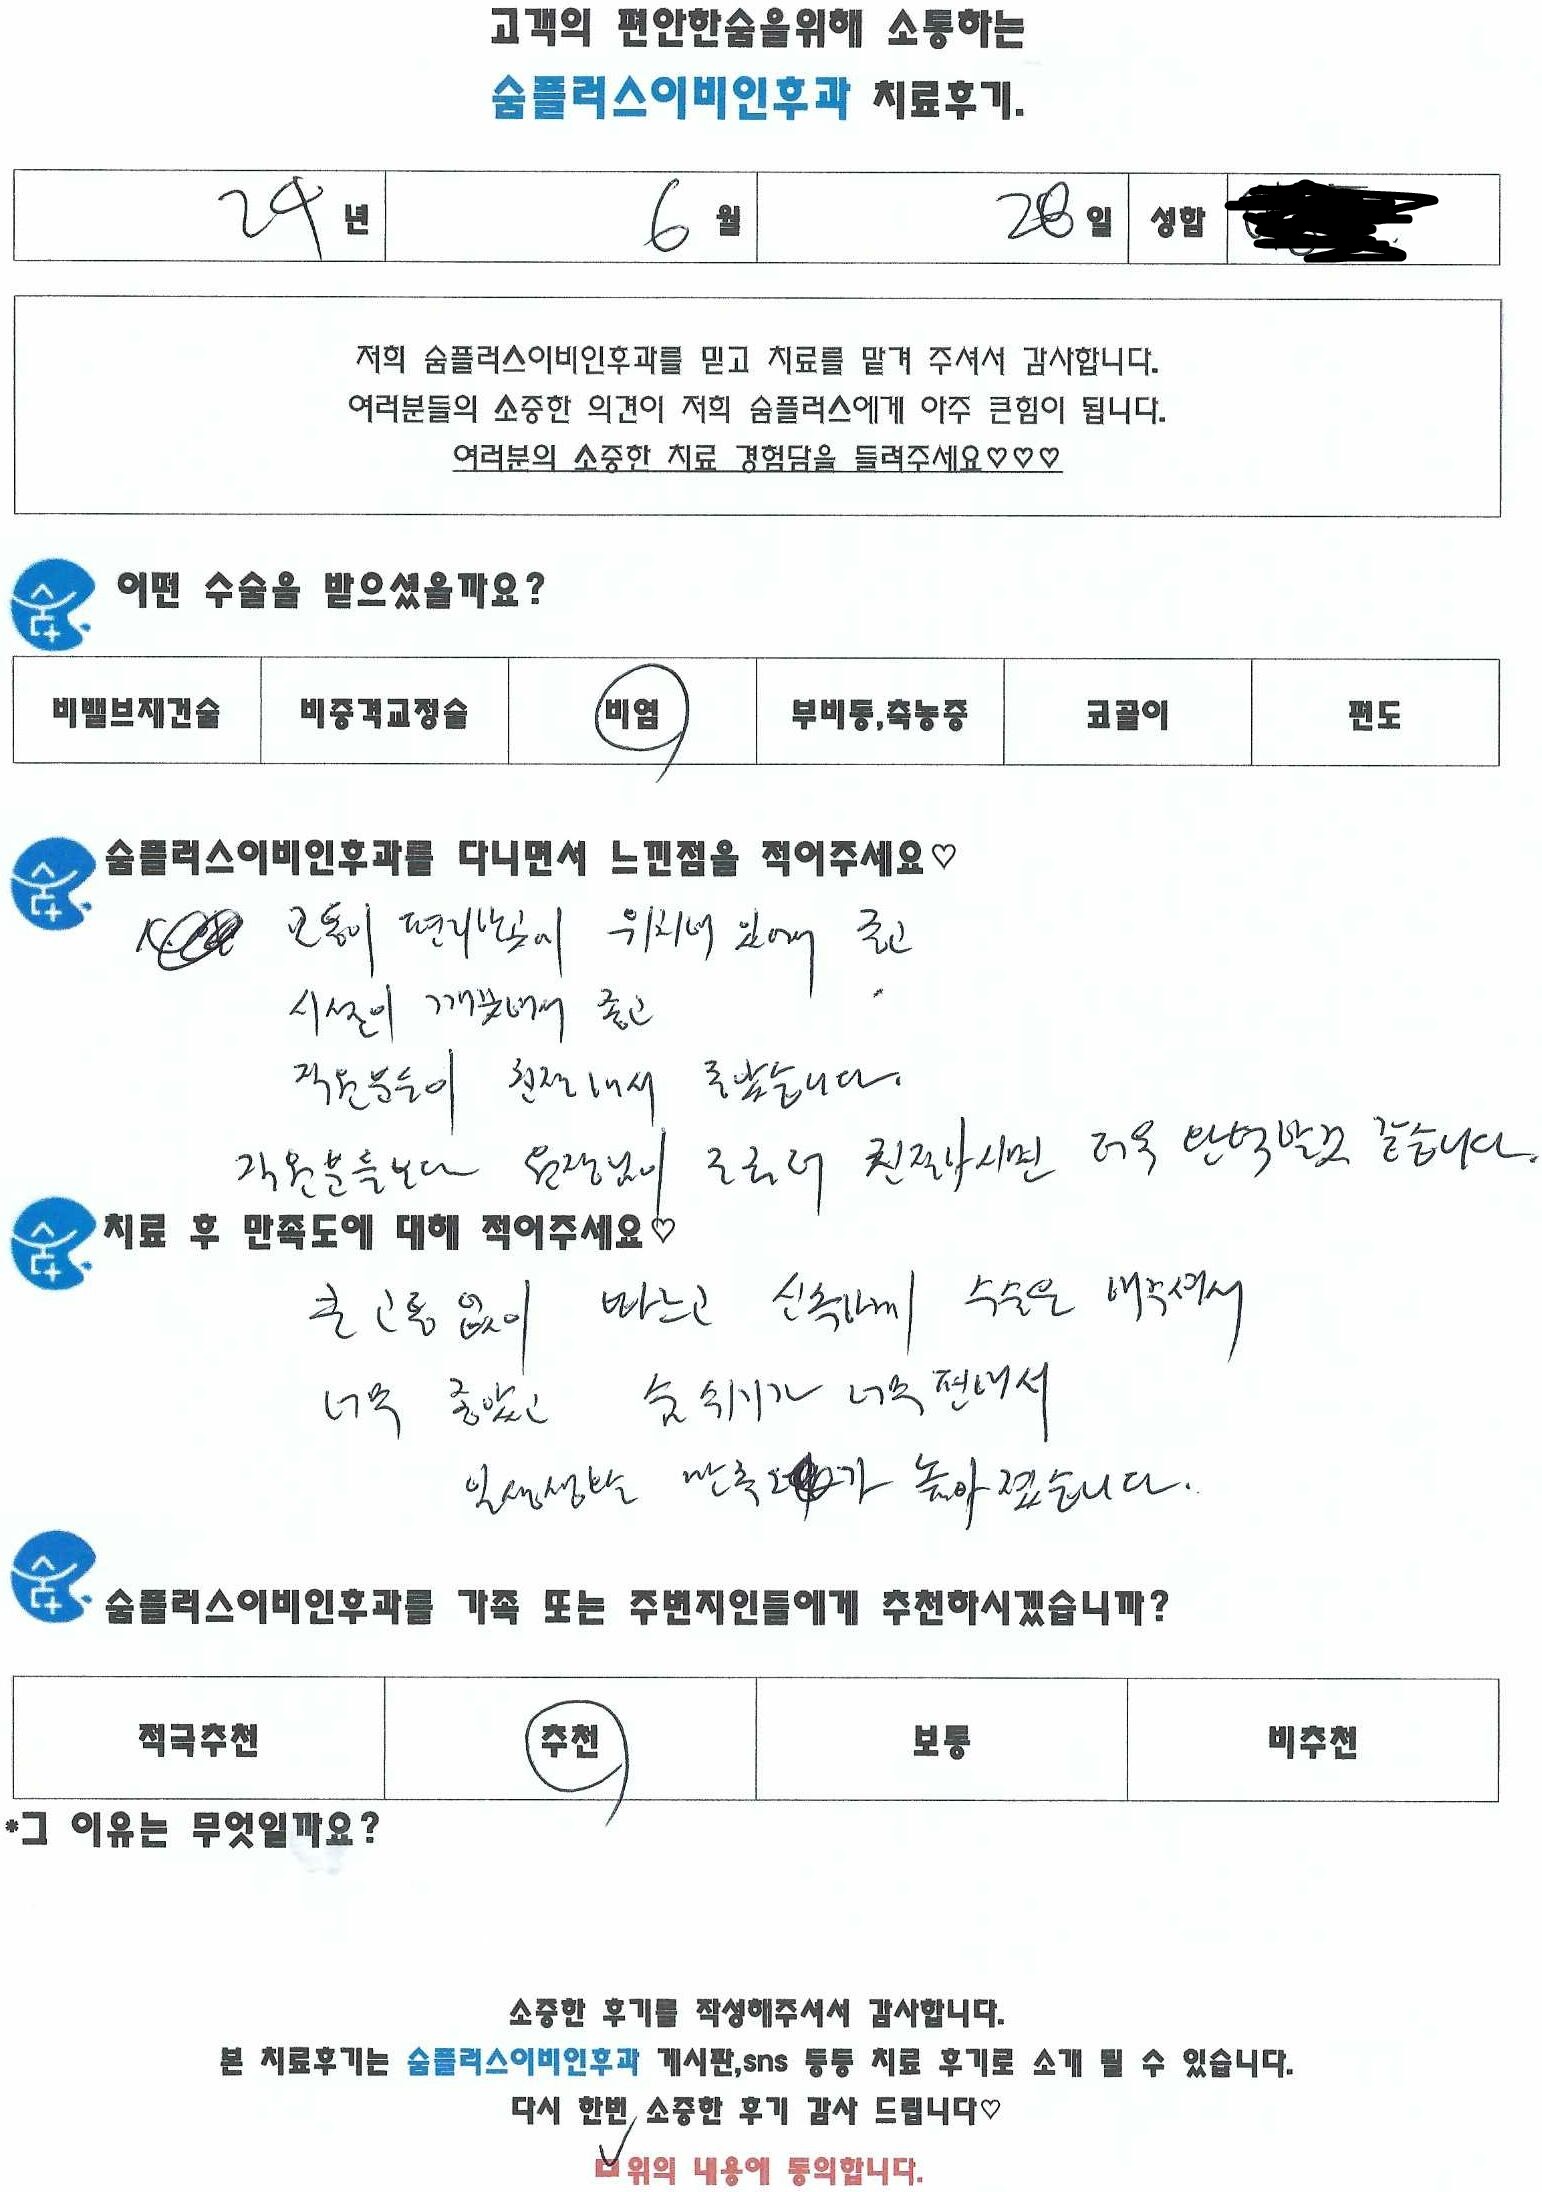 고객의 편안한숨을위해 소통하는
숨플러스이비인후과 치료후기.
24년 6월 28일 성함
저희 숨플러스이비인후과를 믿고 치료를 맡겨 주셔서 감사합니다.
여러분들의 소중한 의견이 저희 숨플러스에게 아주 큰힘이 됩니다.
여러분의 소중한 치료 경험담을 들려주세요♡♡♡
숨 어떤 수술을 받으셨을까요?
비밸브재건술 비중격교정술 비염 부비동,축농증 코골이 편도
숨 숨플러스이비인후과를 다니면서 느낀점을 적어주세요♡
교통이 편리한곳에 위치해 있어서 좋고
시설이 깨끗해서 좋고
직원분들이 친절해서 좋았습니다.
직원분들보다 원장님이 조금 더 친절하시면 더욱 완벽할것 같습니다.
숨 치료 후 만족도에 대해 적어주세요♡
큰 고통 없이 빠르고 신속하게 수술을 해주셔서
너무 좋았고 숨 쉬기가 너무 편해서
일상생활 만족도가 높아졌습니다.
숨 숨플러스이비인후과를 가족 또는 주변지인들에게 추천하시겠습니까?
적극추천 추천 보통 비추천
*그 이유는 무엇일까요?
소중한 후기를 작성해주셔서 감사합니다.
본 치료후기는 숨플러스이비인후과 게시판,sns 등등 치료 후기로 소개 될 수 있습니다.
다시 한번 소중한 후기 감사 드립니다♡
위의 내용에 동의합니다.